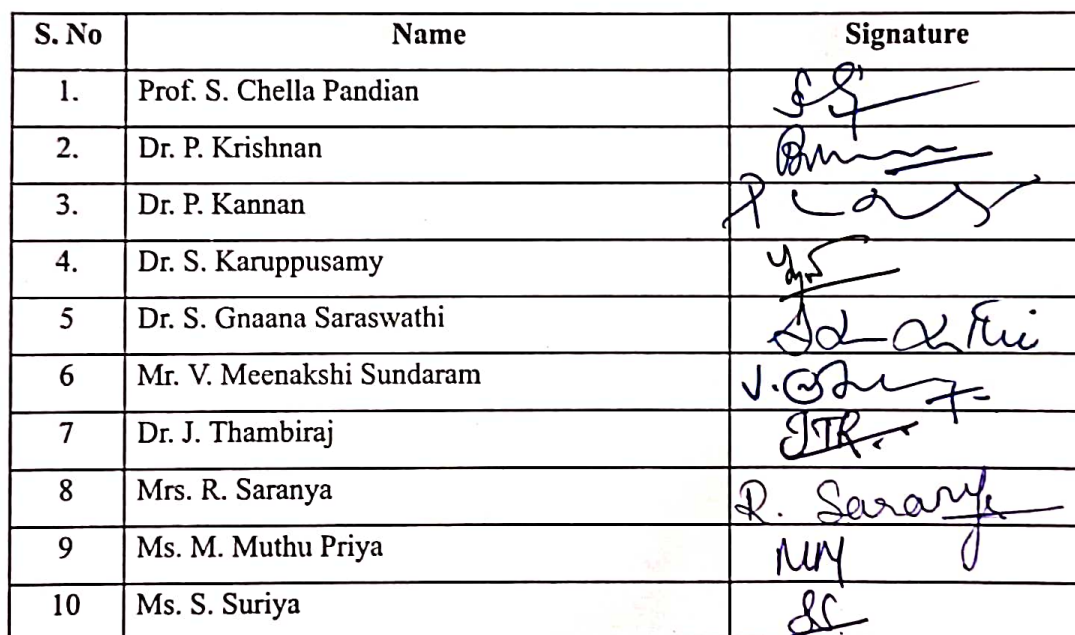 S. No Name Signature
1. Prof. S. Chella Pandian
2. Dr. P. Krishnan
3. Dr. P. Kannan
4. Dr. S. Karuppusamy
5 Dr. S. Gnaana Saraswathi
6 Mr. V. Meenakshi Sundaram
7 Dr. J. Thambiraj JTR
8 Mrs. R. Saranya R. Saranya
9 Ms. M. Muthu Priya
10 Ms. S. Suriya